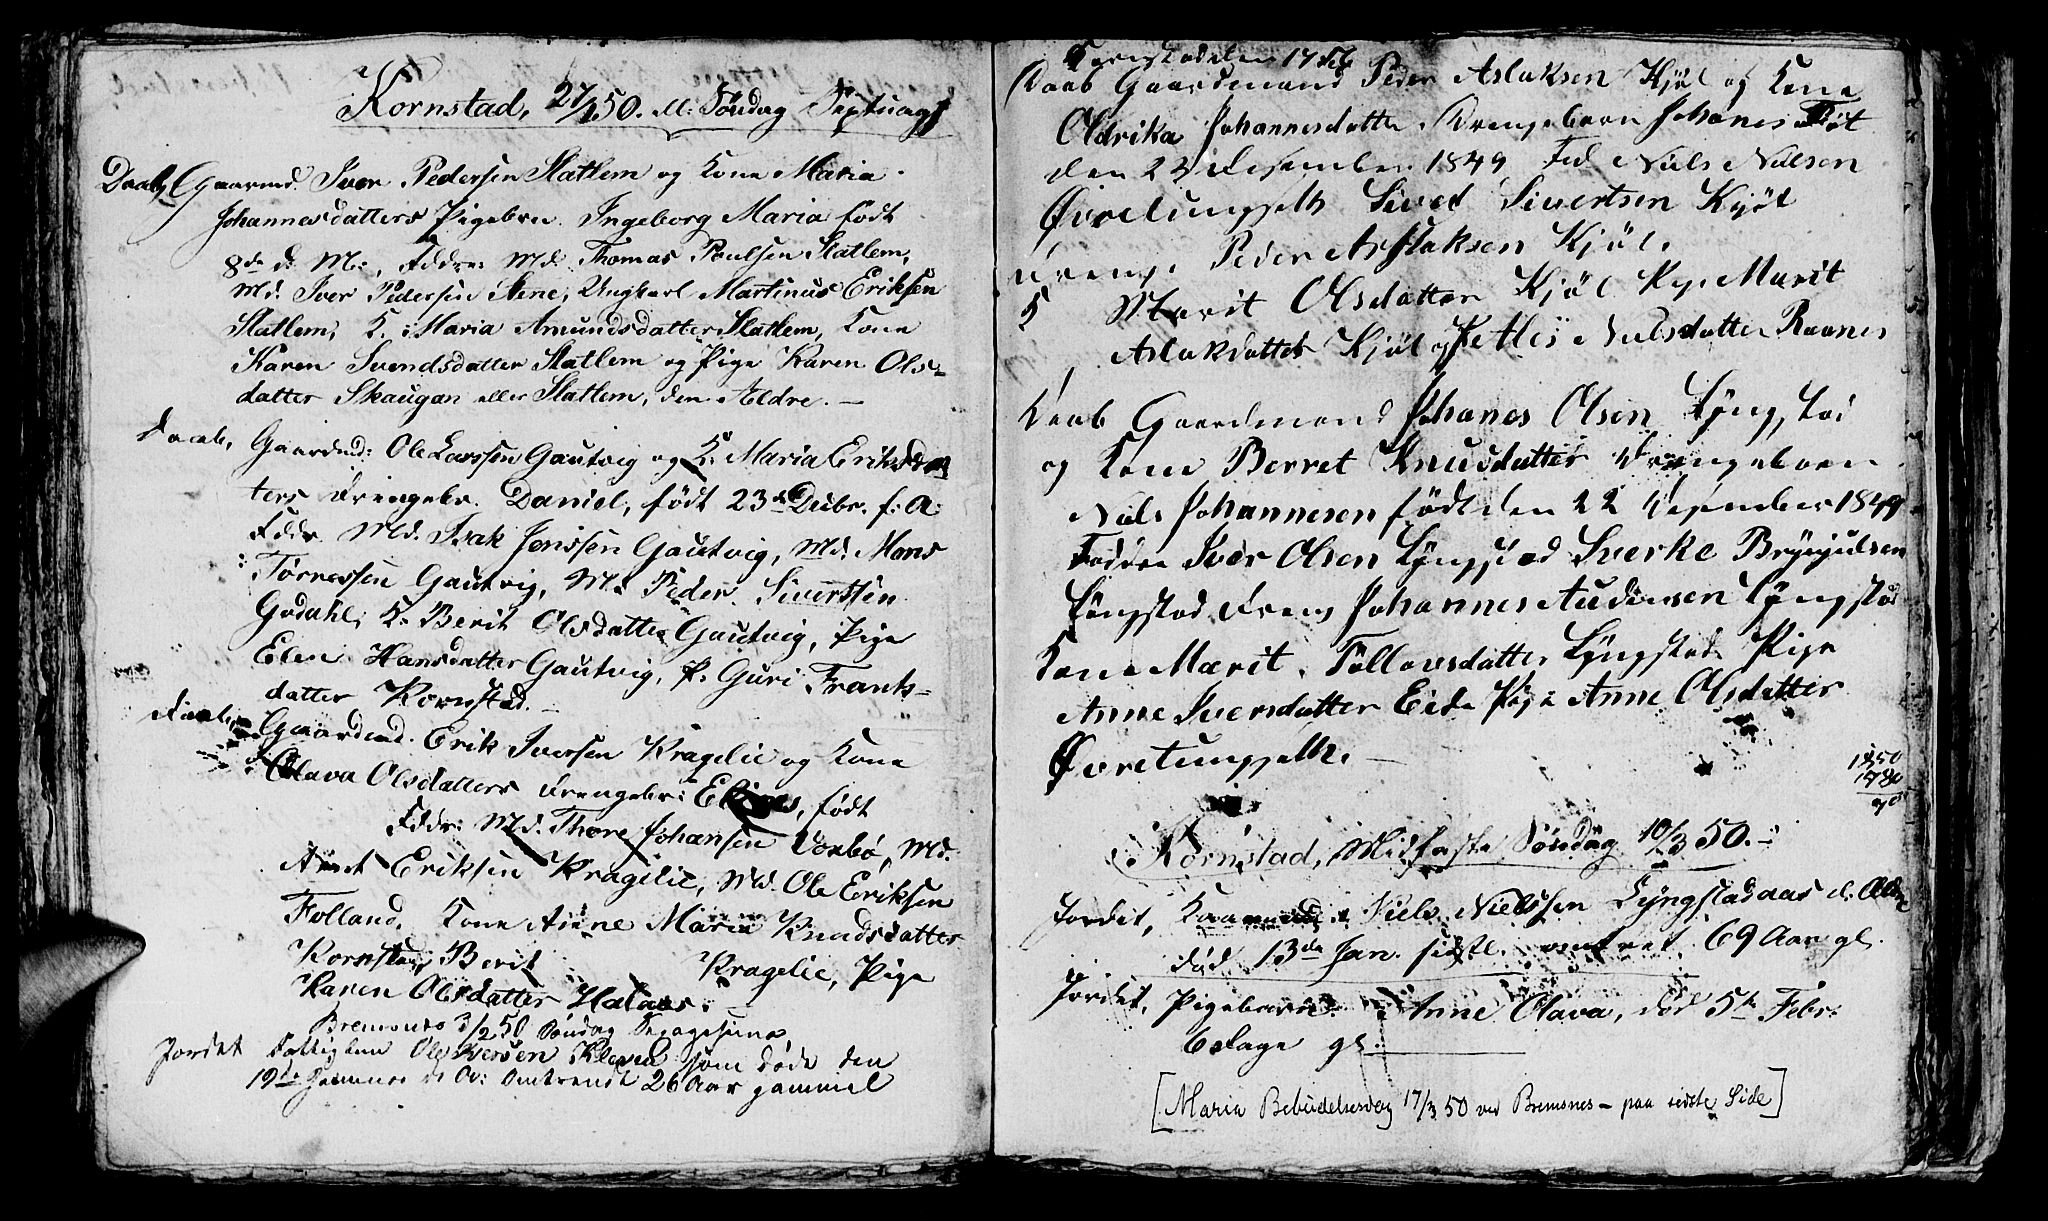 Kornstad, 27/1 50. Søndag Septuag:
Daab, Gaarmd. Iver Pedersen Statlem og Kone Maria
Johannesdatters Pigebrn. Ingeborg Maria født
8de d: M:, Fddre: Md. Thomas Poulsen Statlem,
Md. Iver Pedersen Stene, Ungkarl Martinus Eriksen
Statlem, K. Maria Amundsdatter Statlem, Kone
Karen Svendsdatter Statlem og Pige Karen Ols-
datter Skaugan eller Statlem, den Ældre. –
Daab, Gaardmd: Ole Larssen Gautvig og K. Maria Eriksda
ters Drengebr. Daniel, født 23de Decbr. f: A:
Fddr. Md. Isak Jonssen Gautvig, Md. Mons
Tørressen Gautvig, Md. Peder Sivertsen
Godahl, K. Berit Olsdatter Gautvig, Pige
Elen Hansdatter Gautvig, P. Guri Frants-
datter Kornstad. –
Daab, Gaardmd. Erik Iversen Kragelie og Kone
Olava Olsdatters Drengebr: født
Fddr: Md. Thore Johansen Md.
Arnt Eriksen Kragelie, Md. Ole Eriksen
Folland, Kone Anne Maria Knudsdatter
Kornstad, Berit Kragelie, Pige
Karen Olsdatter
Bremsnes 3/2 50 Søndag
Jordet Ole Iversen som døde den
19de omtrendt 26 Aar gammel
Kornstad den 17
Daab Gaardmand Peder Aslaksen Kjøl og Kone
Oldrika Johannesdatter Drengebarn Johanes født
den 23 Desember 1849 Fad Niels Nielsen
Øvretungseth Sivert Sivertsen Kjøl
Dreng. Peder Aslaksen Kjøl.
K Marit Olsdatter Kjøl Pige Marit
Aslaksdatter Kjøl og Nielsdatter
Daab Gaardmand Johanes Olsen Lyngstad
og Kone Berret Knusdatter Drengebarn
Niels Johannesen født den 22 Desember 1849
Faddre Iver Olsen Lyngstad Sverke Brynjulsen
Lyngstad Dreng Johannes Audensen Lyngstad
Kone Marit Tollovsdatter Lyngstad Pige
Anne Iversdatter Eide Pige Anne Olsdatter
Øvretungseth. –
1850
1780
70
Kornstad, Midfaste Søndag 10/3 50. –
Jordet, Niels Nielssen Lyngstadaas d. Ældre
død 13de Jan. sidstl. omtret. 69 Aar gl.
Jordet, Pigebarn Anne Olava, død 5te Febr:
6 Dage gl.
[Maria Bebudelsesdag 17/3 50 ved Bremsnes – paa sidste Side]